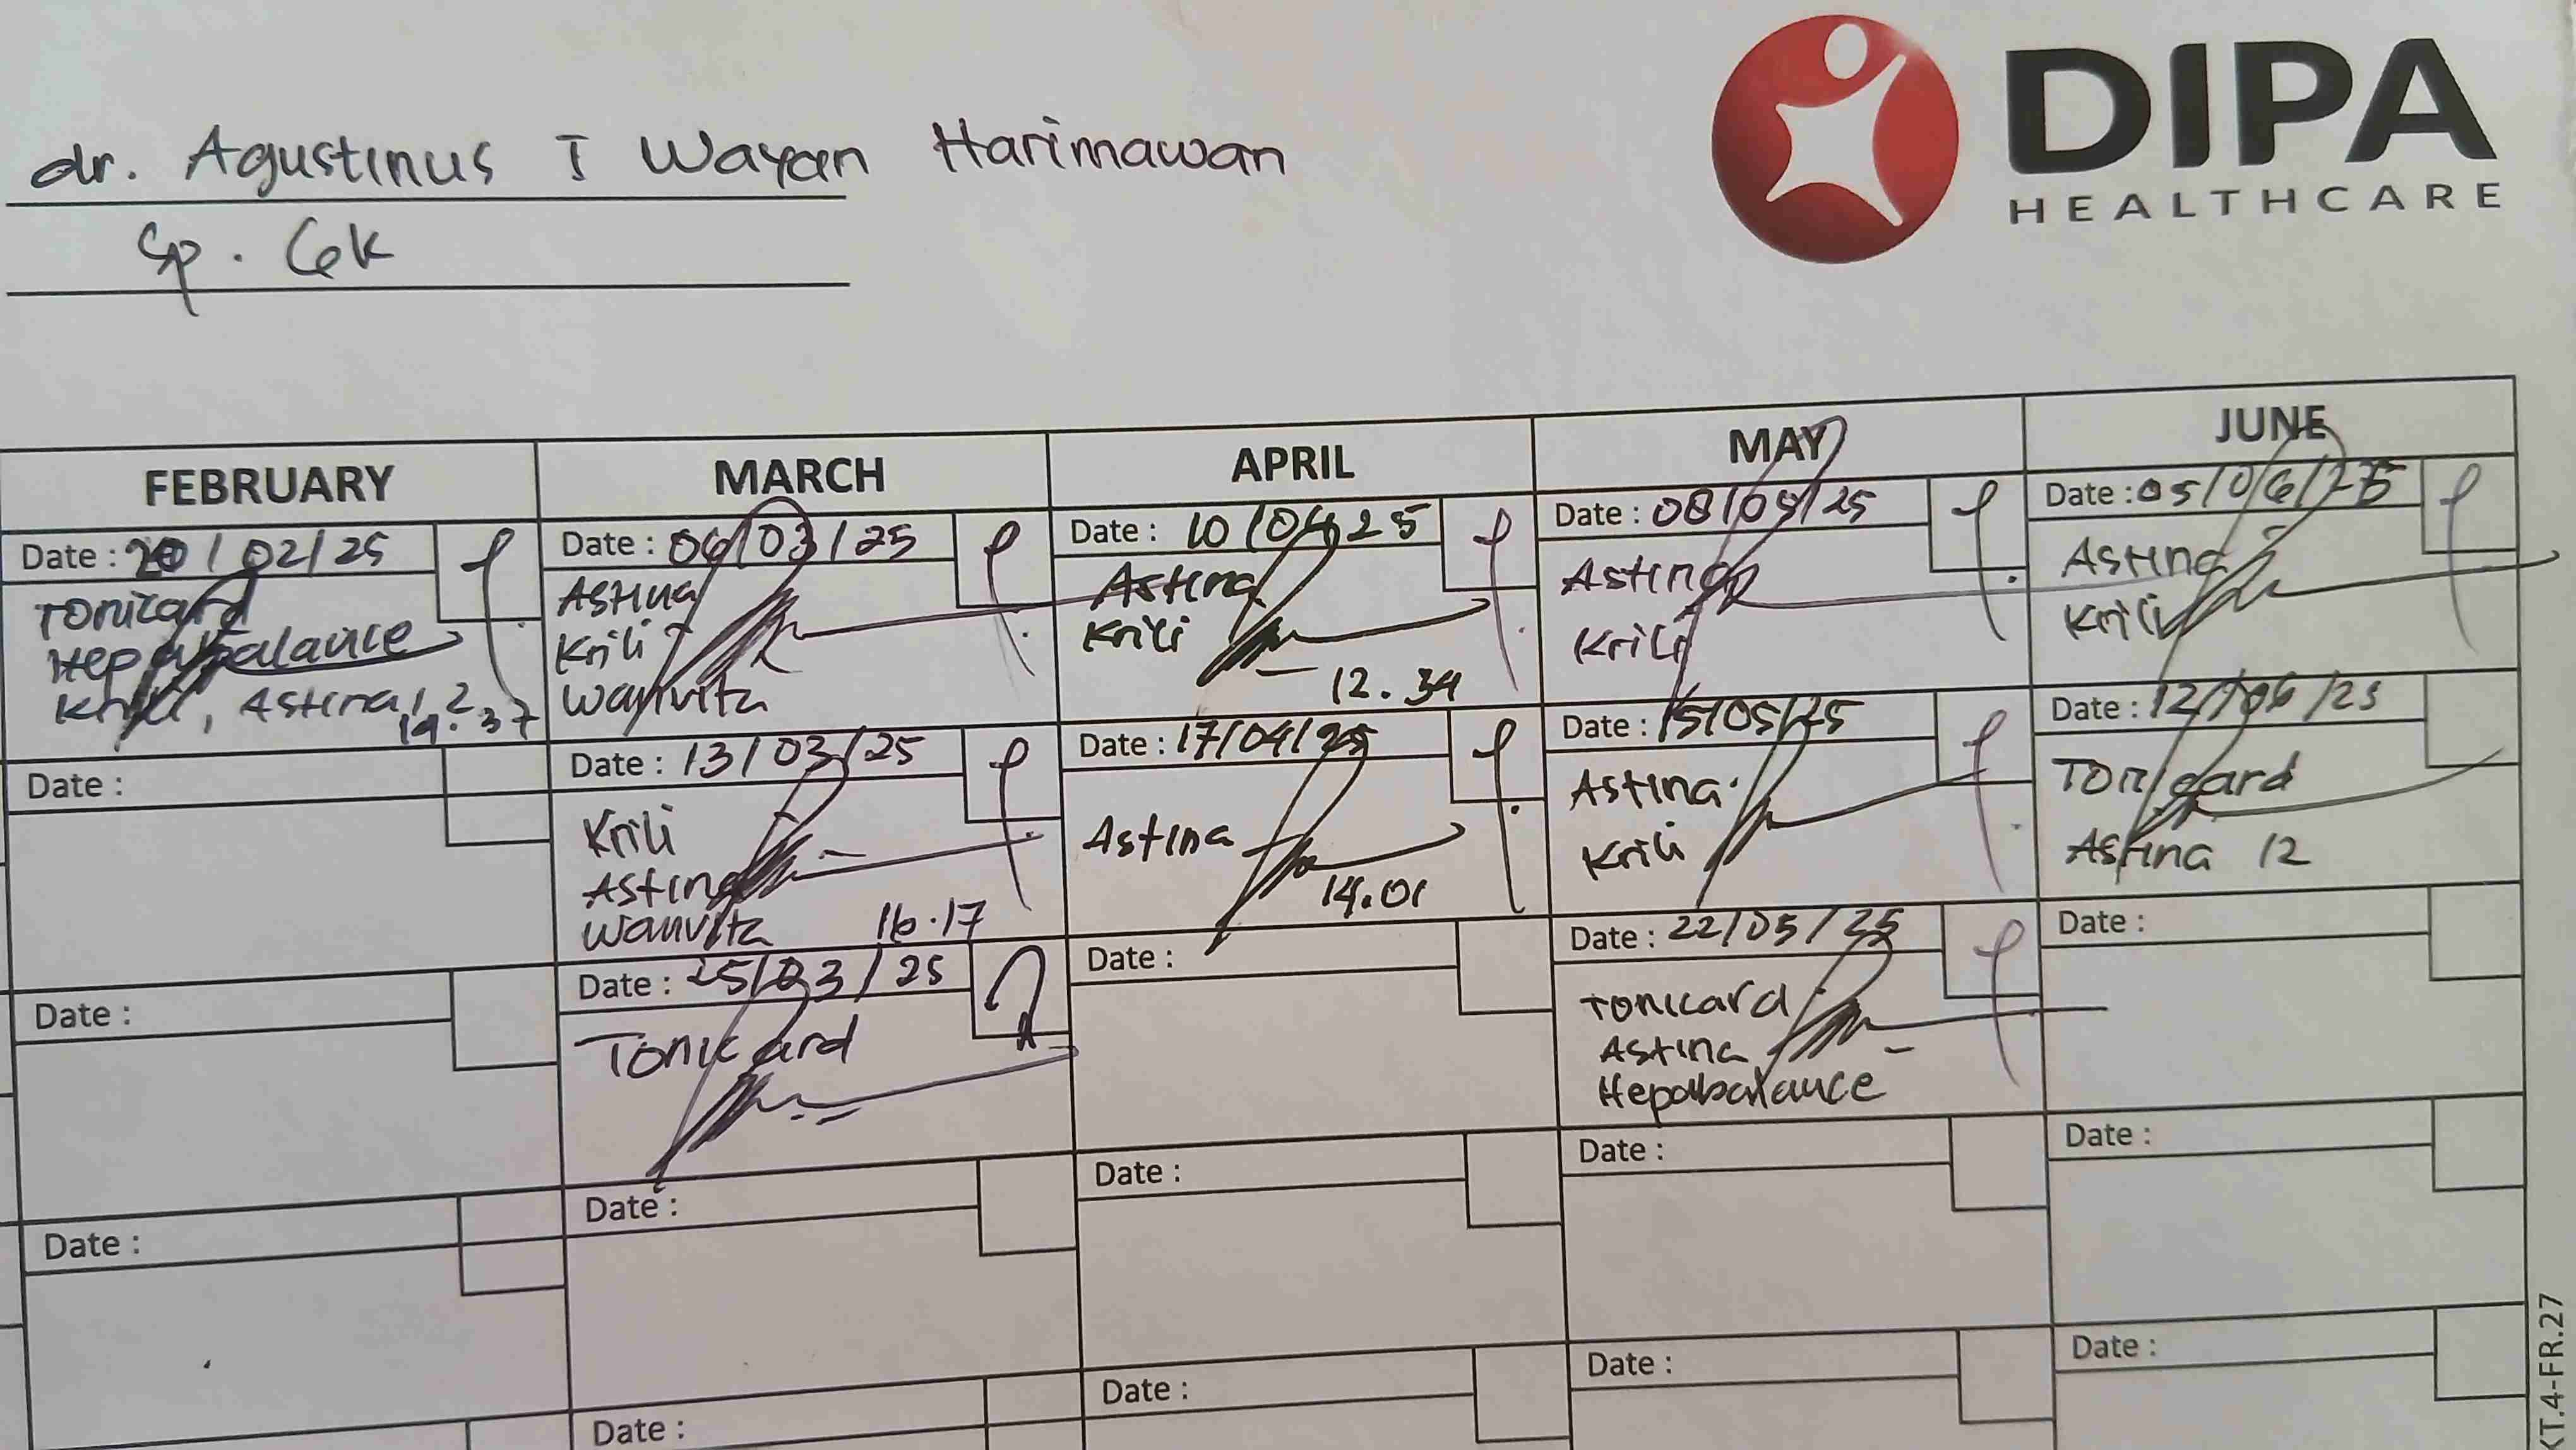 dr. Agustinus I Wayan Harimawan
Sp. GK
DIPA
HEALTHCARE
FEBRUARY
Date : 20/02/25
Tonicard
Hepabalance
Krili, Astina 1,2
19.37
Date :
Date :
Date :
MARCH
Date : 06/03/25
Astina
Krili
Wanvita
Date : 13/03/25
Krili
Astina
Wanvita 16.17
Date : 25/03/25
Tonicard
Date :
Date :
APRIL
Date : 10/04/25
Astina
Krili
12.34
Date : 17/04/25
Astina
14.01
Date :
Date :
Date :
MAY
Date : 08/05/25
Astina
Krili
Date : 15/05/25
Astina
Krili
Date : 22/05/25
Tonicard
Astina
Hepabalance
Date :
Date :
JUNE
Date : 05/06/25
Astina
Krili
Date : 12/06/25
Tonicard
Astina 12
Date :
Date :
Date :
KT.4-FR.27